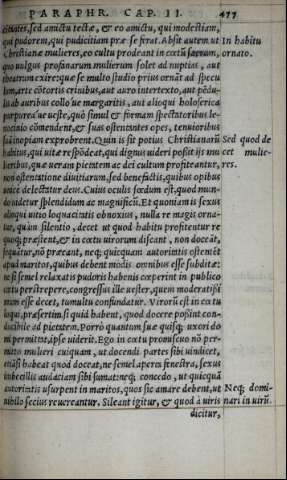 PARAPHR. CAP. II. 477
citiates, sed amictu tectæ, & eo amictu, qui modestiam,
qui pudorem, qui pudicitiam præ se ferat. Absit autem ut In habitu
Christianæ mulieres, eo cultu prodeant in cœtũ sacrum, ornato.
quo vulgus profanarum mulierum solet ad nuptias, aut
theatrum exire: quæ se multo studio prius ornãt ad specu
lum, arte cõtortis crinibus, aut auro intertexto, aut pẽdu
lis ab auribus collo ue margaritis, aut alioqui holoserica
purpurea ue ueste, quò simul & formam spectatoribus le-
nocinio cõmendent, & suas ostentantes opes, tenuioribus
suã inopiam exprobrent. Quin is sit potius Christianarũ Sed quod de
habitus, qui uitæ respõdeat, qui dignus uideri possit ijs mu cet mulie-
lieribus, quæ ueram pietatem ac dei cultum profitentur, res.
non ostentatione diuitiarum, sed benefactis, quibus opibus
unicè delectatur deus. Cuius oculis fœdum est, quod mun-
do uidetur splendidum ac magnificũ. Et quoniam is sexus
alioqui uitio loquacitatis obnoxius, nulla re magis orna-
tur, quàm silentio, decet ut quod habitu profitentur re
quoq; præstent, & in cœtu uirorum discant, non doceãt,
sequãtur, nõ præeant, neq; quicquam autoritatis ostentẽt
apud maritos, quibus debent modis omnibus esse subditæ:
ne si semel relaxatis pudoris habenis cœperint in publico
cœtu perstrepere, congressus ille uester, quem moderatissi
mum esse decet, tumultu confundatur. Virorũ est in cœtu
loqui, præsertim si quid habent, quod docere possint con-
ducibile ad pietatem. Porrò quantum suæ quisq; uxori do
mi permittat, ipse uiderit. Ego in cœtu promiscuo nõ per-
mitto mulieri cuiquam, ut docendi partes sibi uindicet,
etiãsi habeat quod doceat, ne semel aperta fenestra, sexus
imbecillis audaciam sibi sumat: neq; concedo, ut quicquã
autoritatis usurpent in maritos, quos sic amare debent, ut Neq; domi-
nihilo secius reuereantur. Sileant igitur, & quod à uiris nari in uirũ.
dicitur,